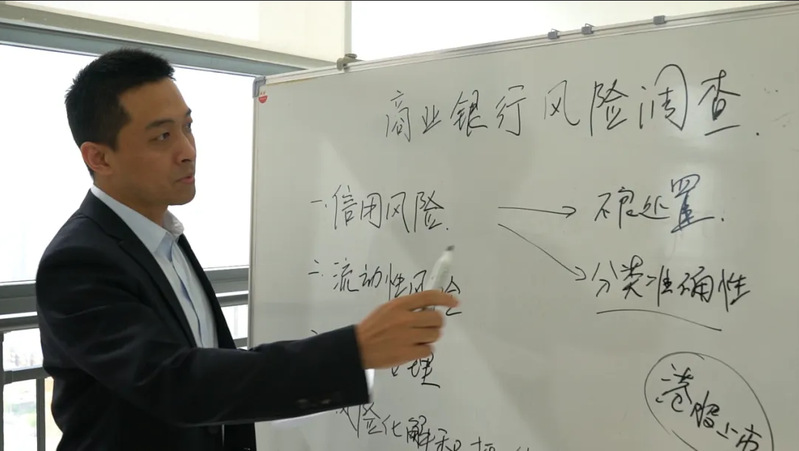 商业银行风险调查.
一.信用风险. → 不良处置.
→ 分类准确性
二.流动性风险
理
港股上市
风险化解和